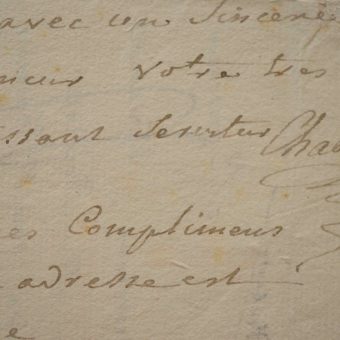 avec un sincere
neur votre tres
issant Serviteur Cha
es Complimens
adresse est
e